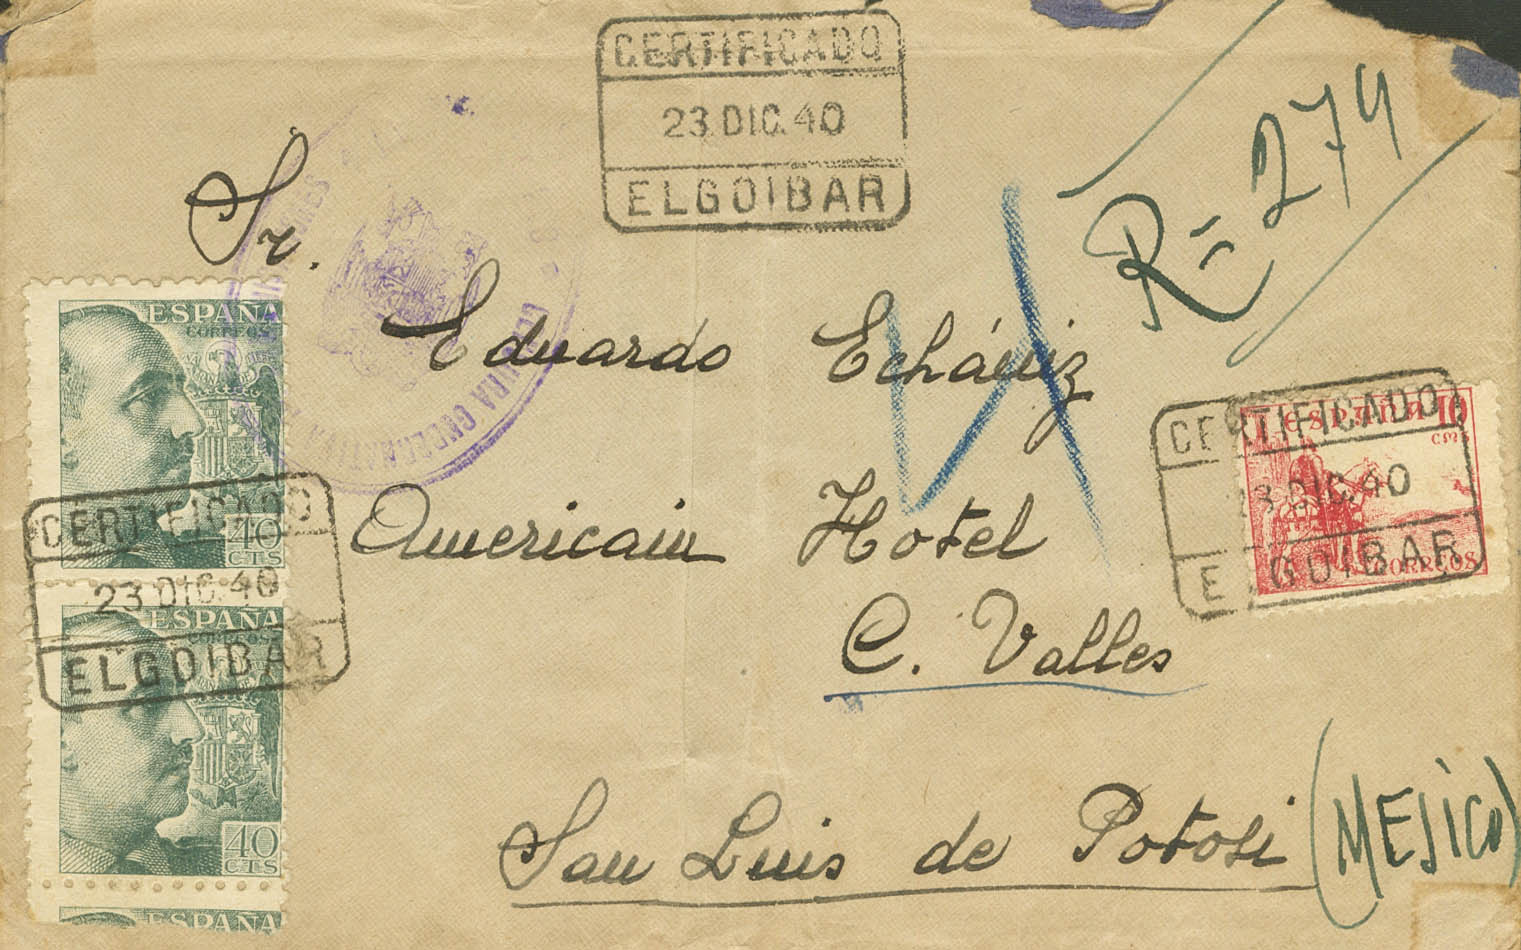 CERTIFICADO
23.DIC.40
ELGOIBAR
R= 279
Sr.
Eduardo Echániz
Americain Hotel
C. Valles
San Luis de Potosi (MEJICO)
CENSURA GUBERNATIVA
ESPAÑA
CORREOS
40
CTS
CERTIFICADO
23 DIC. 40
ELGOIBAR
ESPAÑA
CORREOS
40
CTS
ESPAÑA
CERTIFICADO
23 DIC. 40
ELGOIBAR
ESPAÑA 10
CMS
CORREOS